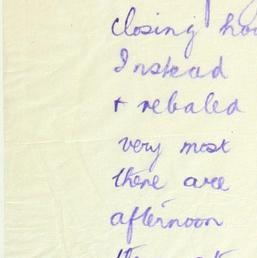 closing
Instead
+ rebaled
very most
there are
afternoon